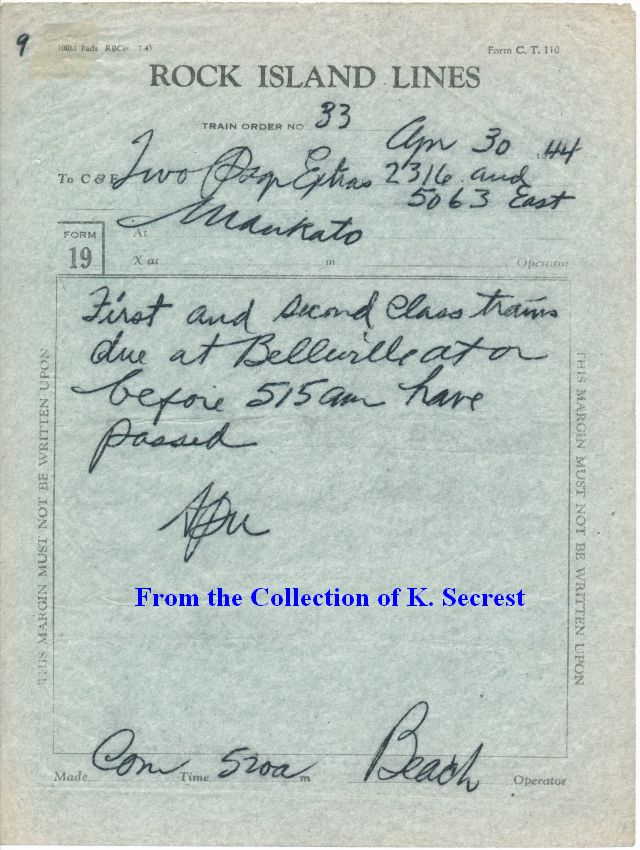 9
100M Pads RBCo. 7-43 Form C. T. 110
ROCK ISLAND LINES
TRAIN ORDER NO. 33
Apr 30 1944
To C & E Two Psgr Extras 2316 and
5063 East
At Mankato
FORM
19
X at m Operator
First and second class trains
due at Belleville at or
before 515 am have
passed
THIS MARGIN MUST NOT BE WRITTEN UPON
THIS MARGIN MUST NOT BE WRITTEN UPON
From the Collection of K. Secrest
Made Com Time 520a m Beach Operator